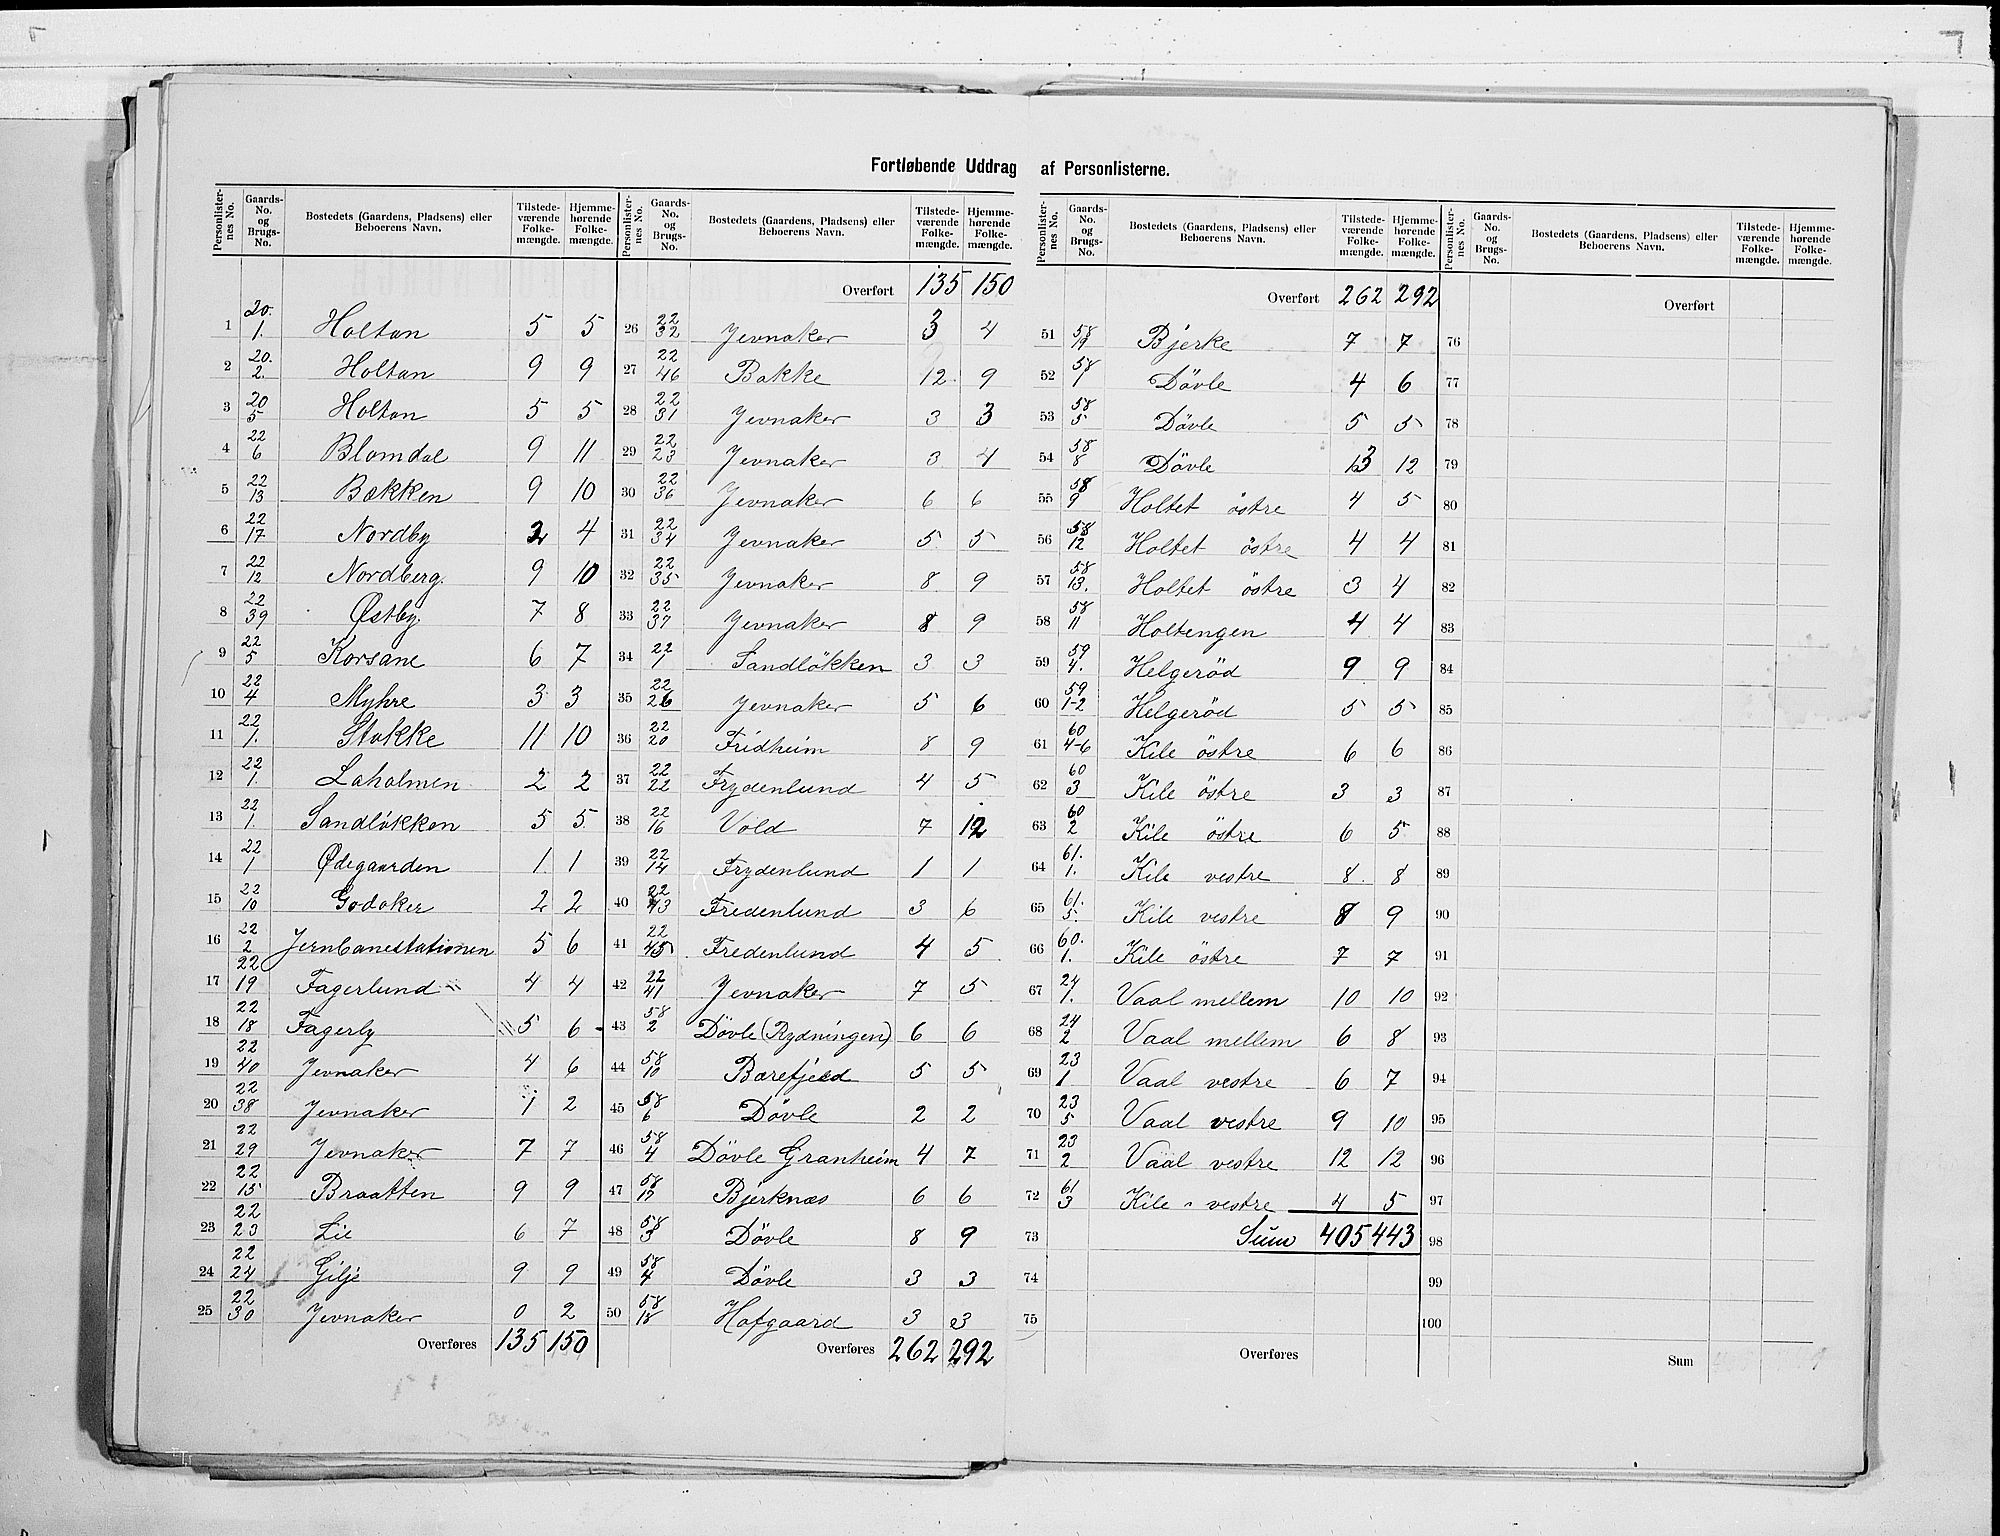 Fortløbende Uddrag af Personlisterne.
Personlister-nes No. Gaards-No. og Brugs-No. Bostedets (Gaardens, Pladsens) eller Beboerens Navn. Tilstede-værende Folke-mængde. Hjemme-hørende Folke-mængde.
1 20. 1. Holtan 5 5
2 20. 2. Holtan 9 9
3 20 5 Holtan 5 5
4 22 6 Blomdal 9 11
5 22 13 Bækken 9 10
6 22 17 Nordby 2 4
7 22 12 Nordberg. 9 10
8 22 39 Østby. 7 8
9 22 5 Korsane 6 7
10 22 4 Myhre 3 3
11 22 1. Stokke 11 10
12 22 1. Laholmen 2 2
13 22 1. Sandløkken 5 5
14 22 1 Ødegaarden 1 1
15 22 10 Godaker 2 2
16 22 2 Jernbanestationen 5 6
17 22 19 Fagerlund 4 4
18 22 18 Fagerly 5 6
19 22 40 Jevnaker 4 6
20 22 38 Jevnaker 1 2
21 22 29 Jevnaker 7 7
22 22 15 Braatten 9 9
23 22 23 Lie 6 7
24 22 24 Gilje 9 9
25 22 30 Jevnaker 0 2
Overføres 135 150
Personlister-nes No. Gaards-No. og Brugs-No. Bostedets (Gaardens, Pladsens) eller Beboerens Navn. Tilstede-værende Folke-mængde. Hjemme-hørende Folke-mængde.
Overført 135 150
26 22 32 Jevnaker 3 4
27 22 46 Bakke 12 9
28 22 31 Jevnaker 3 3
29 22 23 Jevnaker 3 4
30 22 36 Jevnaker 6 6
31 22 34 Jevnaker 5 5
32 22 35 Jevnaker 8 9
33 22 37 Jevnaker 8 9
34 22 1 Sandlökken 3 3
35 22 26 Jevnaker 5 6
36 22 20 Fridheim 8 9
37 22 22 Frydenlund 4 5
38 22 16 Vold 7 12
39 22 14 Frydenlund 1 1
40 22 43 Fredenlund 3 6
41 22 45 Fredenlund 4 5
42 22 41 Jevnaker 7 5
43 58 2 Dövle (Rydningen) 6 6
44 58 10 Barefjeld 5 5
45 58 6 Dövle 2 2
46 58 4 Dövle Granheim 4 7
47 58 17 Bjerknæs 6 6
48 58 3 Dövle 8 9
49 58 4 Dövle 3 3
50 58 18 Hofgaard 3 3
Overføres 262 292
Personlister-nes No. Gaards-No. og Brugs-No. Bostedets (Gaardens, Pladsens) eller Beboerens Navn. Tilstede-værende Folke-mængde. Hjemme-hørende Folke-mængde.
Overført 262 292
51 58 19 Bjerke 7 7
52 58 1 Dövle 4 6
53 58 5 Dövle 5 5
54 58 8 Dövle 13 12
55 58 9 Holtet östre 4 5
56 58 12 Holtet östre 4 4
57 58 13. Holtet östre 3 4
58 58 11 Holtengen 4 4
59 59 4. Helgeröd 9 9
60 59 1-2 Helgeröd 5 5
61 60 4-6 Kile östre 6 6
62 60 3 Kile östre 3 3
63 60 2 Kile östre 6 5
64 61. 1. Kile vestre 8 8
65 61. 5. Kile vestre 8 9
66 60. 1. Kile östre 7 7
67 24 1. Vaal mellem 10 10
68 24 2 Vaal mellem 6 8
69 23 1 Vaal vestre 6 7
70 23 5 Vaal vestre 9 10
71 23 2 Vaal vestre 12 12
72 61 3 Kile vestre 4 5
73 Sum 405 443
74
75
Overføres
Personlister-nes No. Gaards-No. og Brugs-No. Bostedets (Gaardens, Pladsens) eller Beboerens Navn. Tilstede-værende Folke-mængde. Hjemme-hørende Folke-mængde.
Overført
76
77
78
79
80
81
82
83
84
85
86
87
88
89
90
91
92
93
94
95
96
97
98
99
100
Sum